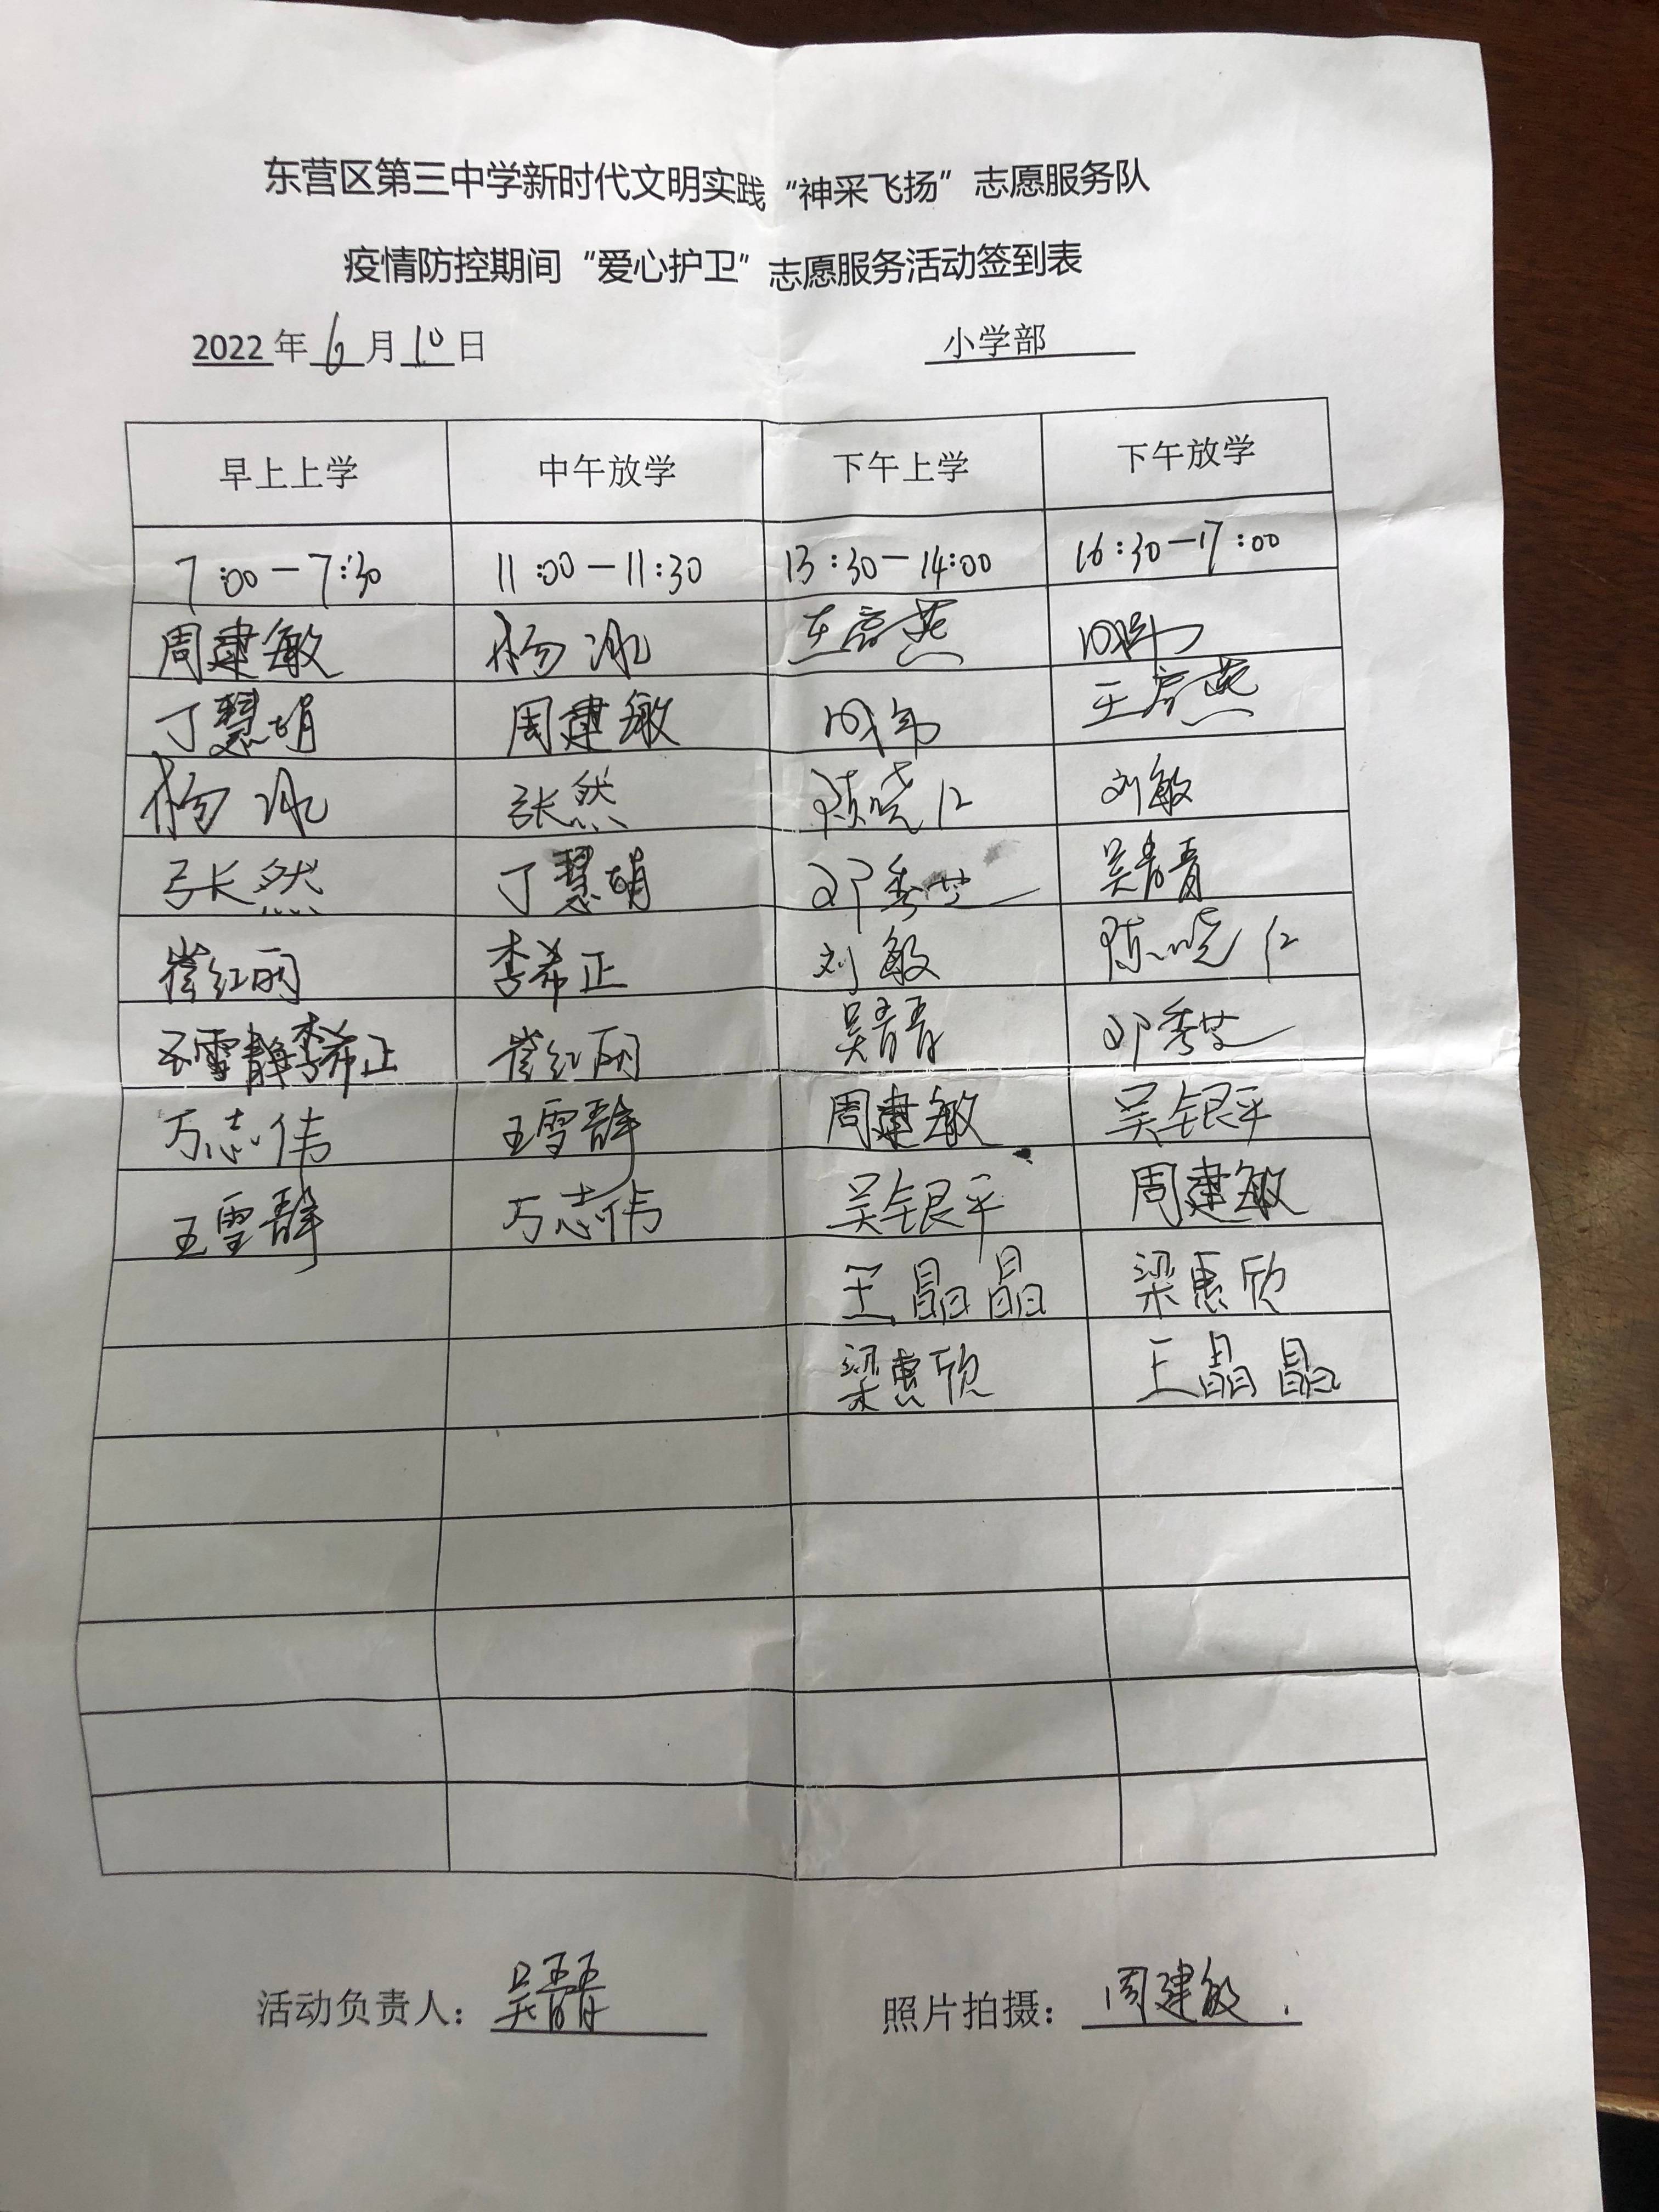 东营区第三中学新时代文明实践“神采飞扬”志愿服务队
疫情防控期间“爱心护卫”志愿服务活动签到表
2022年6月10日 小学部
早上上学 中午放学 下午上学 下午放学
7:00-7:30 11:00-11:30 13:30-14:00 16:30-17:00
周建敏 杨冰
丁慧娟 周建敏
杨冰 张然 陈晓仁 刘敏
张然 丁慧娟 邓秀芝 吴青青
崔红丽 李希正 刘敏 陈晓仁
王雪静李希正 崔红丽 吴青青 邓秀芝
万志伟 王雪静 周建敏 吴银平
王雪静 万志伟 吴银平 周建敏
王晶晶 梁惠欣
梁惠欣 王晶晶
活动负责人：吴青青 照片拍摄：周建敏